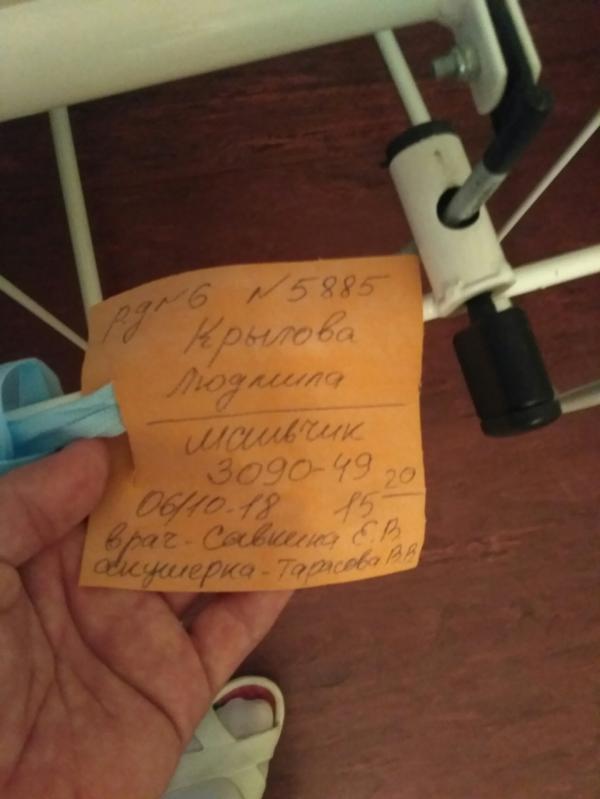 р.д №6 №5885
Крылова
Людмила
мальчик
3090-49
06/10-18 15 20
врач - Савкина Е.В
акушерка - Тарасова В.В